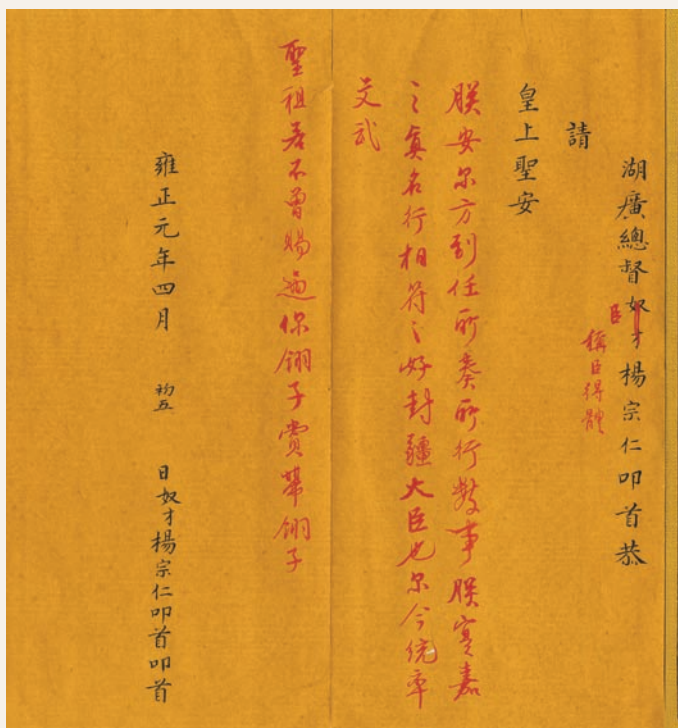 湖廣總督奴才楊宗仁叩首恭
臣
稱臣得體
請
皇上聖安
朕安尔方到任所奏所行數事朕實嘉
之真名行相符之好封疆大臣也尔今統率
文武
聖祖若不曾賜過你翎子賞帶翎子
雍正元年四月 初五 日奴才楊宗仁叩首叩首